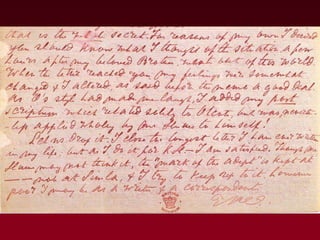 that is the whole secret. For reasons of my own I desired
you should know what I thought of the situation a few
hours after my beloved Brother, went out of this world.
When the letter reached you my feelings were somewhat
changed & I altered as said before the memo a good deal.
As O's style had made me laugh, I added my post
scriptum which related solely to Olcott, but was never-
less applied wholly by Mr. Hume to himself.
Let us drop it. I close the longest letter I have ever written
in my life; but as I do it for K.H. — I am satisfied. Though Mr.
Hume may not think it, the "mark of the adept" is kept at
—— not at Simla, & I try to keep up to it, however
poor I may be as a writer & a correspondent.